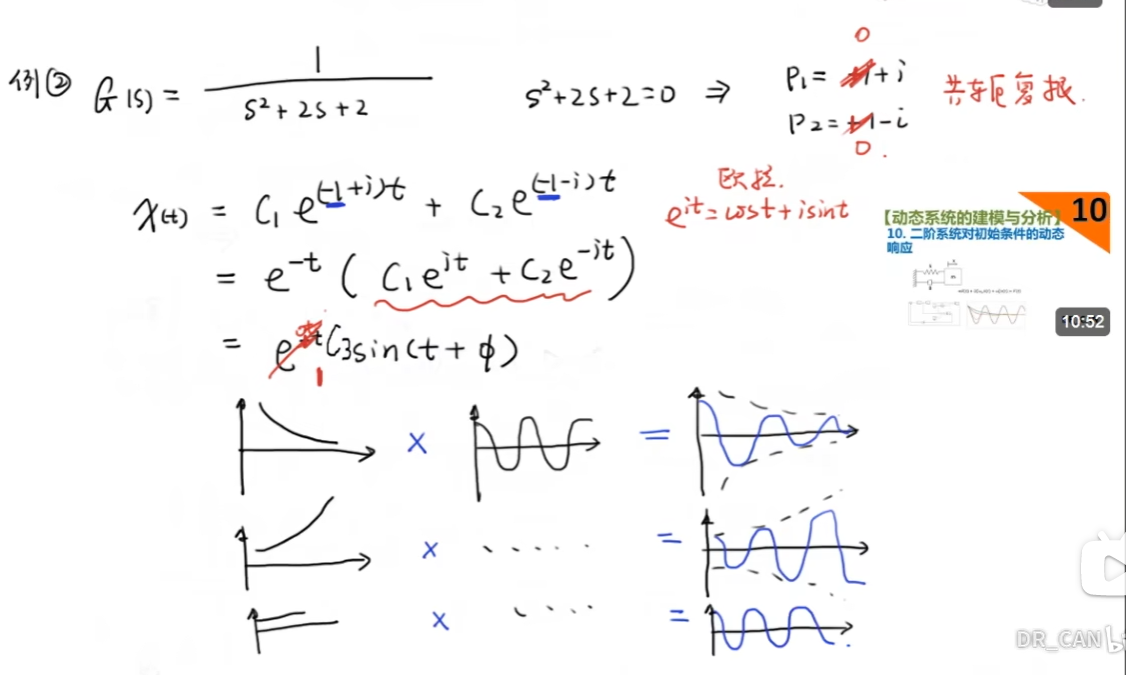 例② G(s) = 1 / s²+2s+2
s²+2s+2=0 ⇒
0
P₁= +1+i
P₂= +1-i
0.
共轭复根.
x(t) = C₁e^(-1+i)t + C₂e^(-1-i)t
欧拉.
e^it=cost+isint
= e^-t ( C₁e^it + C₂e^-it )
= e^t C₃sin(t+φ)
1
【动态系统的建模与分析】 10
10. 二阶系统对初始条件的动态
响应
10:52
× =
× ····· =
× ···· =
DR_CAN